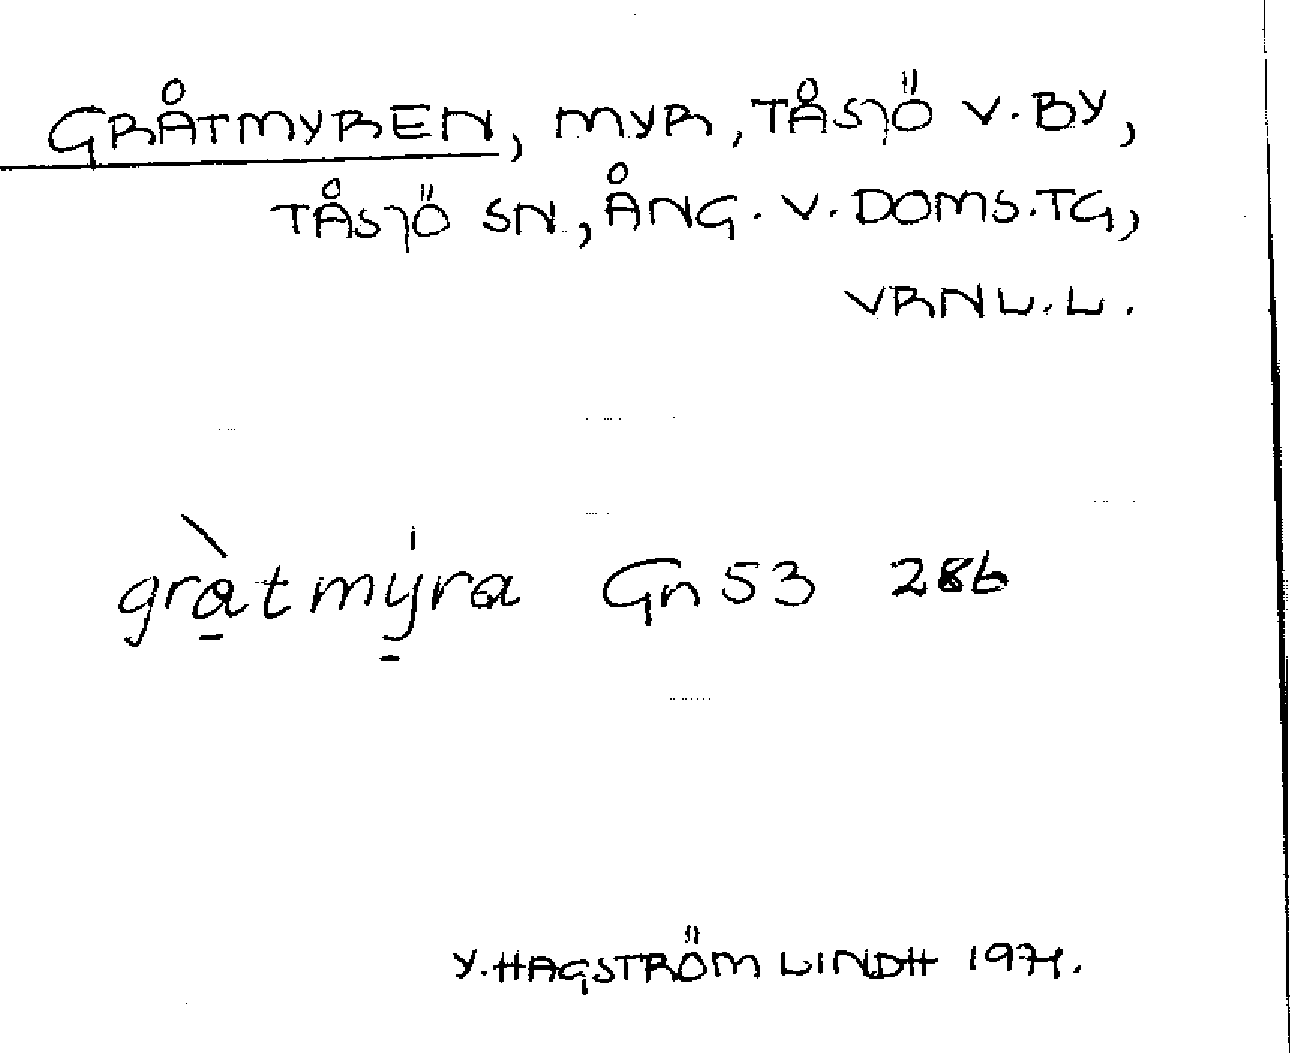 GRÅTMYREN, MYR, TÅSJÖ V. BY,
TÅSJÖ SN, ÅNG. V. DOMS. TG,
VRNL. L.
gràtmýra Gn 53 286
Y. HAGSTRÖM LINDH 1971.